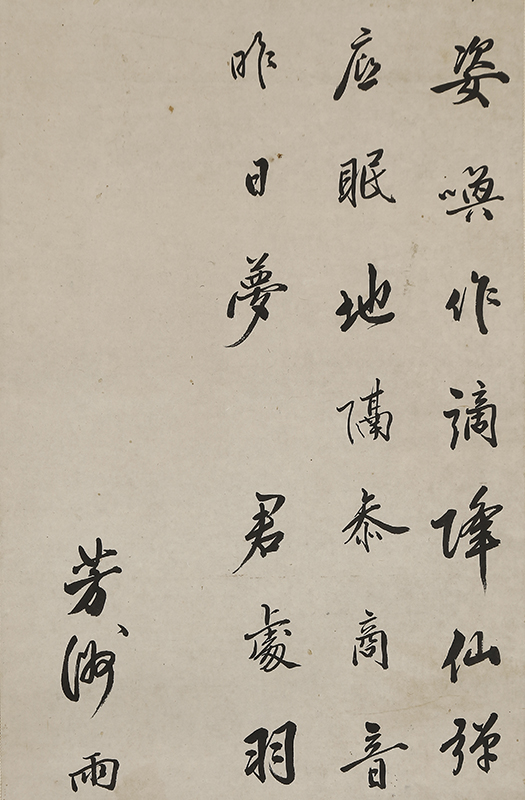 姿喚作謫降仙彈
眠地隔參商音
昨日夢 君處羽
芳洲雨